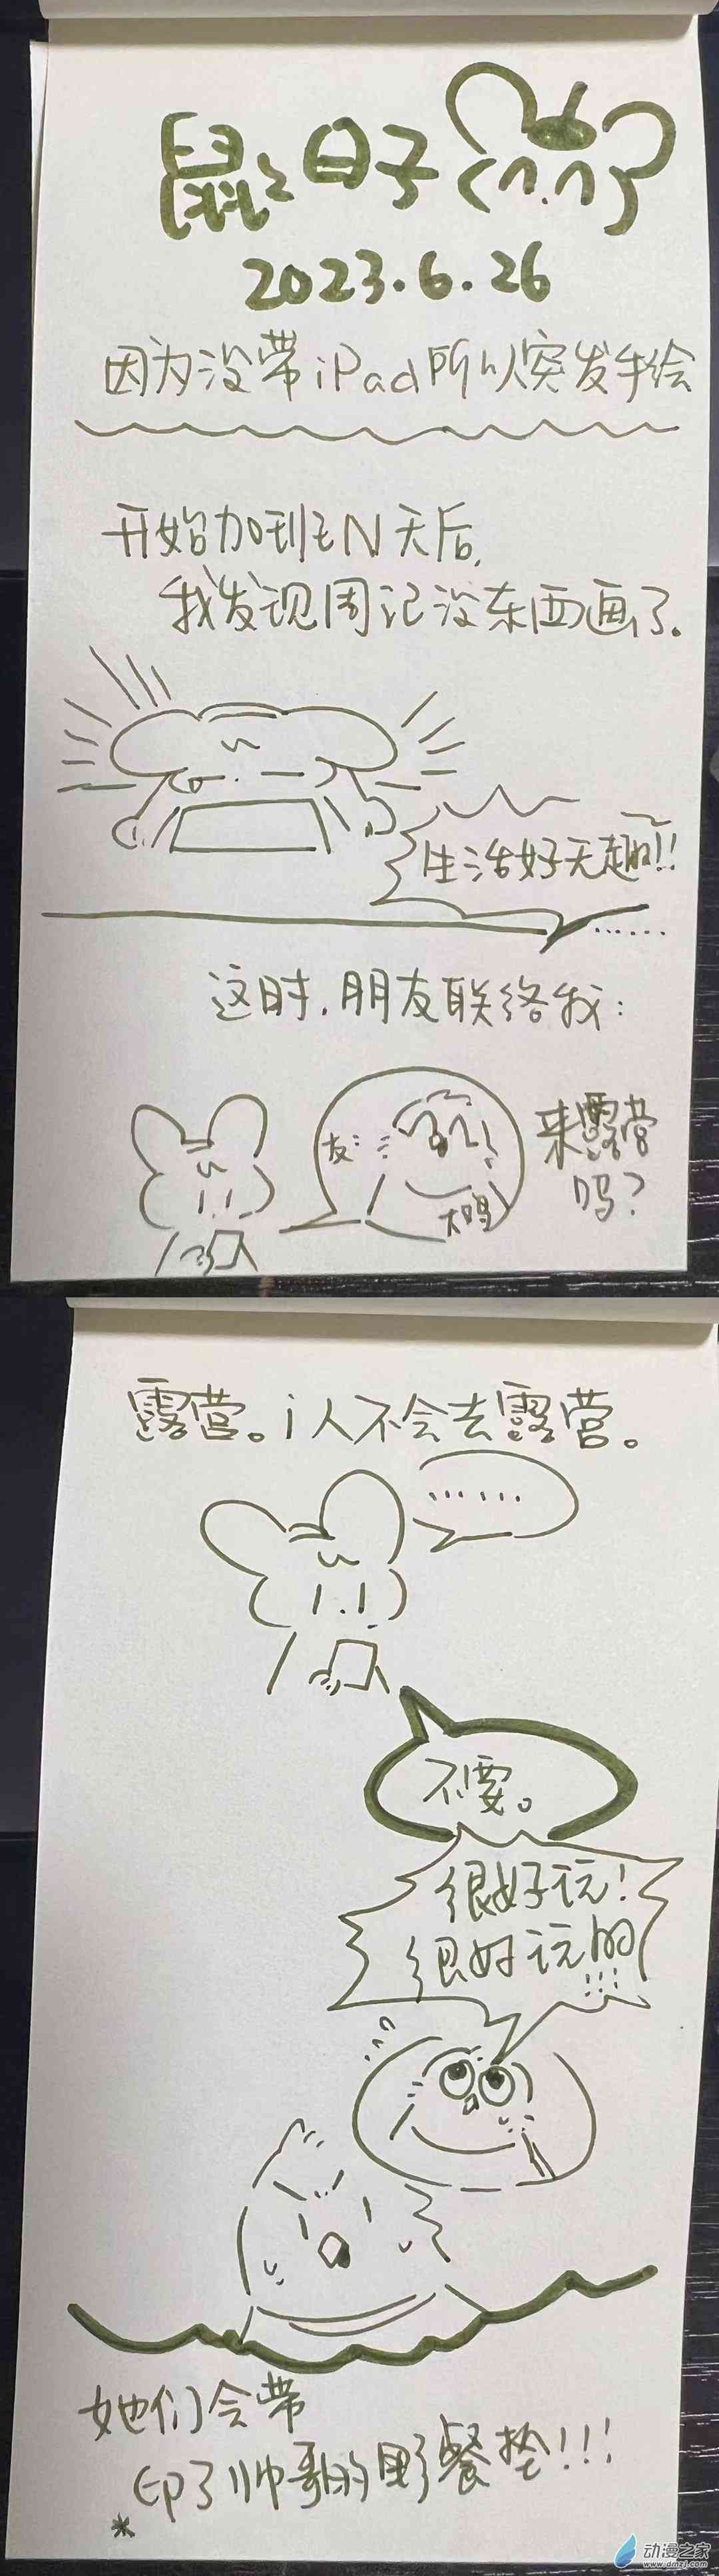 鼠之日子
2023.6.26
因为没带iPad所以突发手绘
开始加班N天后,
我发现周记没东西画了.
生活好无趣!!
......
这时,朋友联络我:
友:
来露营
吗?
露营。i人不会去露营。
......
不要。
很好玩!
很好玩的
!!!
她们会带
印了帅哥的野餐垫!!!
*
动漫之家
www.dmzj.com